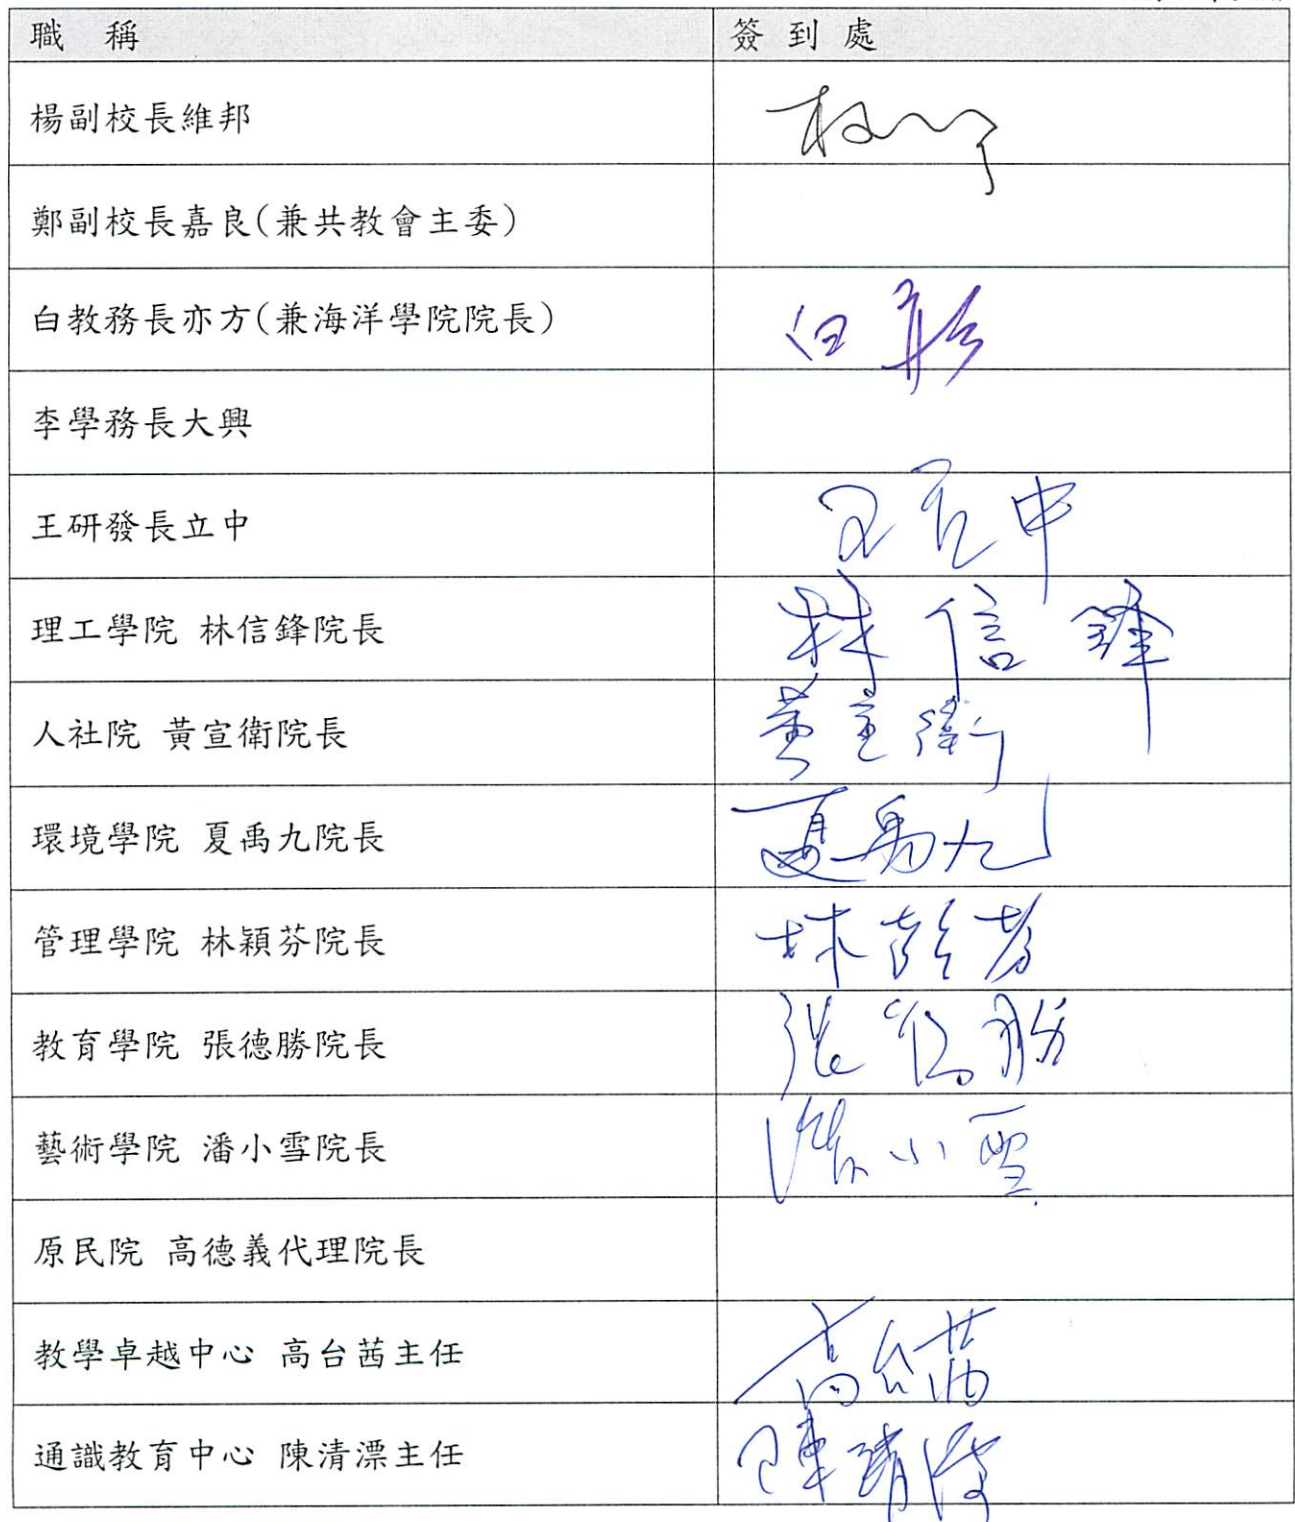 職 稱 簽 到 處
楊副校長維邦
鄭副校長嘉良(兼共教會主委)
白教務長亦方(兼海洋學院院長) 白
李學務長大興
王研發長立中 王立中
理工學院 林信鋒院長 林信鋒
人社院 黃宣衛院長 黃宣衛
環境學院 夏禹九院長 夏禹九
管理學院 林穎芬院長 林穎芬
教育學院 張德勝院長 張德勝
藝術學院 潘小雪院長 潘小雪
原民院 高德義代理院長
教學卓越中心 高台茜主任 高台茜
通識教育中心 陳清漂主任 陳清漂